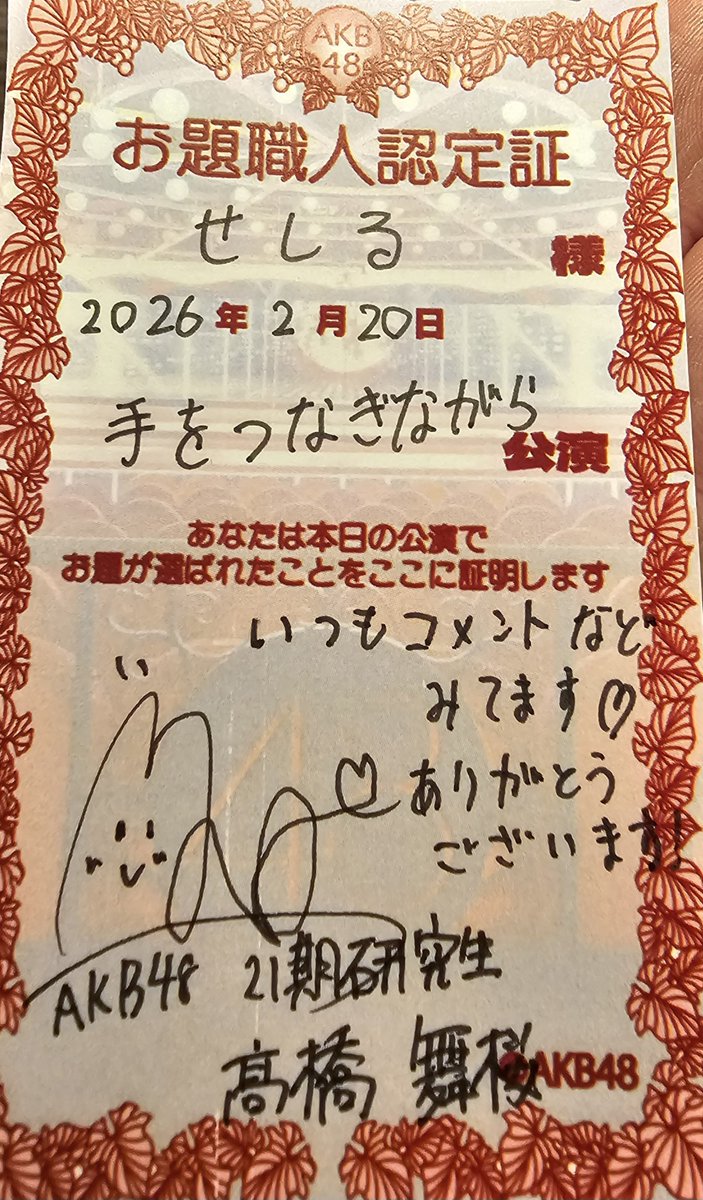 AKB
48
お題職人認定証
せしる 様
2026年2月20日
手をつなぎながら 公演
あなたは本日の公演で
お題が選ばれたことをここに証明します
いつもコメントなど
みてます♡
ありがとう
ございます!
AKB48 21期研究生
高橋 舞桜
AKB48